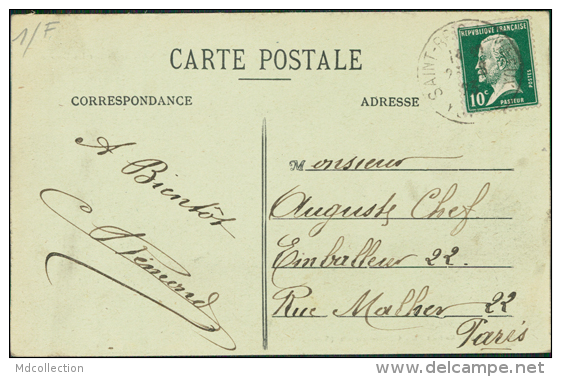 1/F
CARTE POSTALE
RÉPUBLIQUE FRANÇAISE
10c
PASTEUR
POSTES
SAINT-
CORRESPONDANCE
ADRESSE
A Bientôt
Monsieur
Auguste Chef
Emballeur 22.
Rue Malher 22
Paris
Mdcollection
http://www.delcampe.net